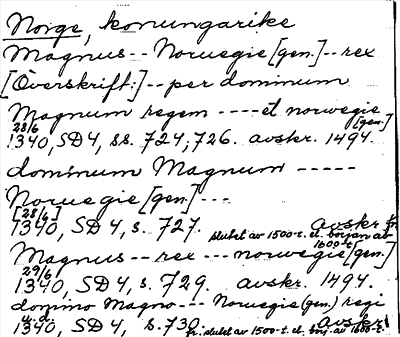 Norge, konungarike
Magnus -- Noruegie [gen.] -- rex
[Överskrift:] -- per dominum
Magnum regem ---- et norwegie [gen.]
28/6
1340, SD 4, ss. 724, 726. avskr. 1494.
dominum Magnum -----
Noruegie [gen] ---
[28/6]
1340, SD 4, s. 727. avskr. fr. slutet av 1500-t. el. början av 1600-t.
Magnus -- rex --- norwegie [gen.]
29/6
1340, SD 4, s. 729. avskr. 1494.
domino Magno --- Noruegie (gen.) regi
u.d.
1340, SD 4, s. 730. avskr. fr. slutet av 1500-t. el. börj. av 1600-t.